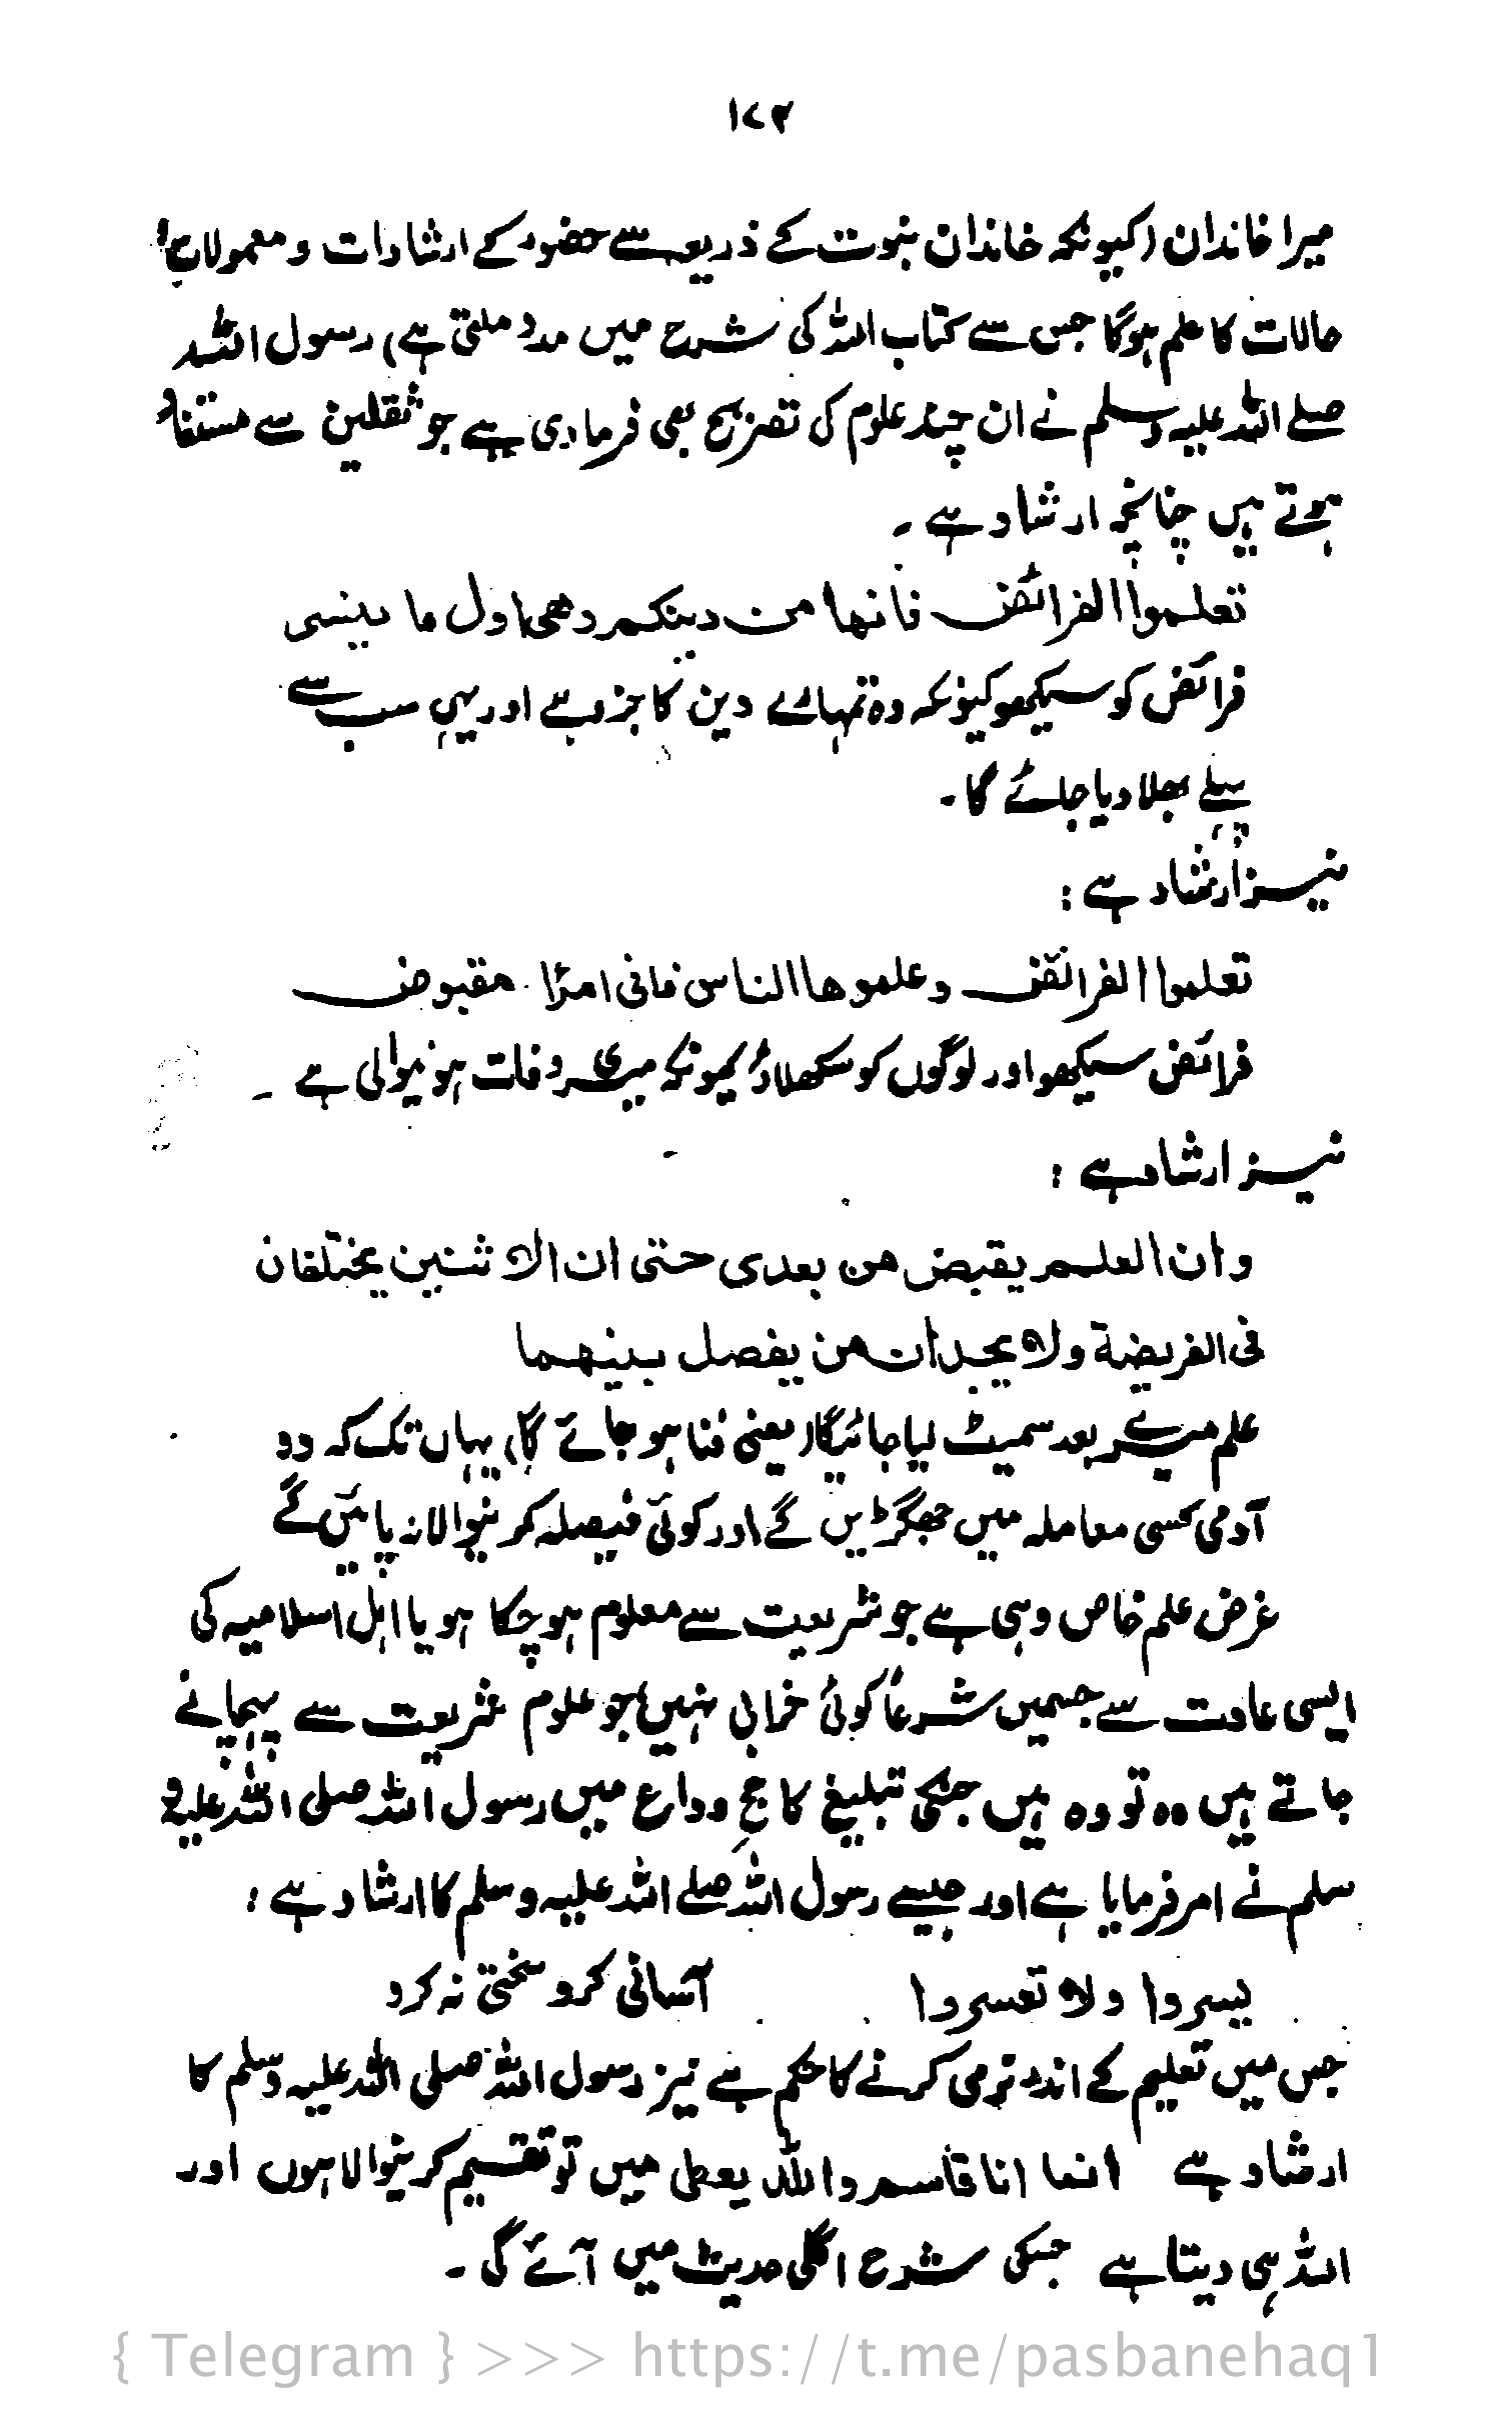 ۱۷۲
میرا خاندان (کیونکہ خاندان نبوت کے ذریعہ سے حضور کے ارشادات و معمولات و
حالات کا علم ہوگا جس سے کتاب اللہ کی شرح میں مدد ملتی ہے) رسول اللہ
صلے اللہ علیہ وسلم نے ان چند علوم کی تصریح بھی فرما دی ہے جو ثقلین سے مستفاد
ہوتے ہیں چنانچہ ارشاد ہے ۔
تعلموا الفرائض فانها من دینکم وهی اول ما ینسی
فرائض کو سیکھو کیونکہ وہ تمہارے دین کا جزو ہے اور یہی سب سے
پہلے بھلا دیا جائے گا ۔
نیز ارشاد ہے :
تعلموا الفرائض وعلموها الناس فانی امرؤ مقبوض
فرائض سیکھو اور لوگوں کو سکھلاؤ کیونکہ میری وفات ہونیوالی ہے ۔
نیز ارشاد ہے :
وان العلم یقبض من بعدی حتی ان الاثنین یختلفان
فی الفریضة ولا یجدان من یفصل بینهما
علم میرے بعد سمیٹ لیا جائیگا (یعنی فنا ہو جائے گا) یہاں تک کہ دو
آدمی کسی معاملہ میں جھگڑیں گے اور کوئی فیصلہ کرنیوالا نہ پائیں گے
غرض علم خاص وہی ہے جو شریعت سے معلوم ہو چکا ہو یا اہل اسلامیہ کی
ایسی عادت سے جسمیں شرعاً کوئی خرابی نہیں، جو علوم شریعت سے پہچانے
جاتے ہیں وہ تو وہ ہیں جنکی تبلیغ کا حجِ وداع میں رسول اللہ صلی اللہ علیہ و
سلم نے امر فرمایا ہے اور جیسے رسول اللہ صلے اللہ علیہ وسلم کا ارشاد ہے :
یسروا ولا تعسروا آسانی کرو سختی نہ کرو
جس میں تعلیم کے اندر نرمی کرنے کا حکم ہے نیز رسول اللہ صلی اللہ علیہ وسلم کا
ارشاد ہے انما انا قاسم والله یعطی میں تو تقسیم کرنیوالا ہوں اور
اللہ ہی دیتا ہے جسکی شرح اگلی حدیث میں آئے گی ۔
{ Telegram } >>> https://t.me/pasbanehaq1